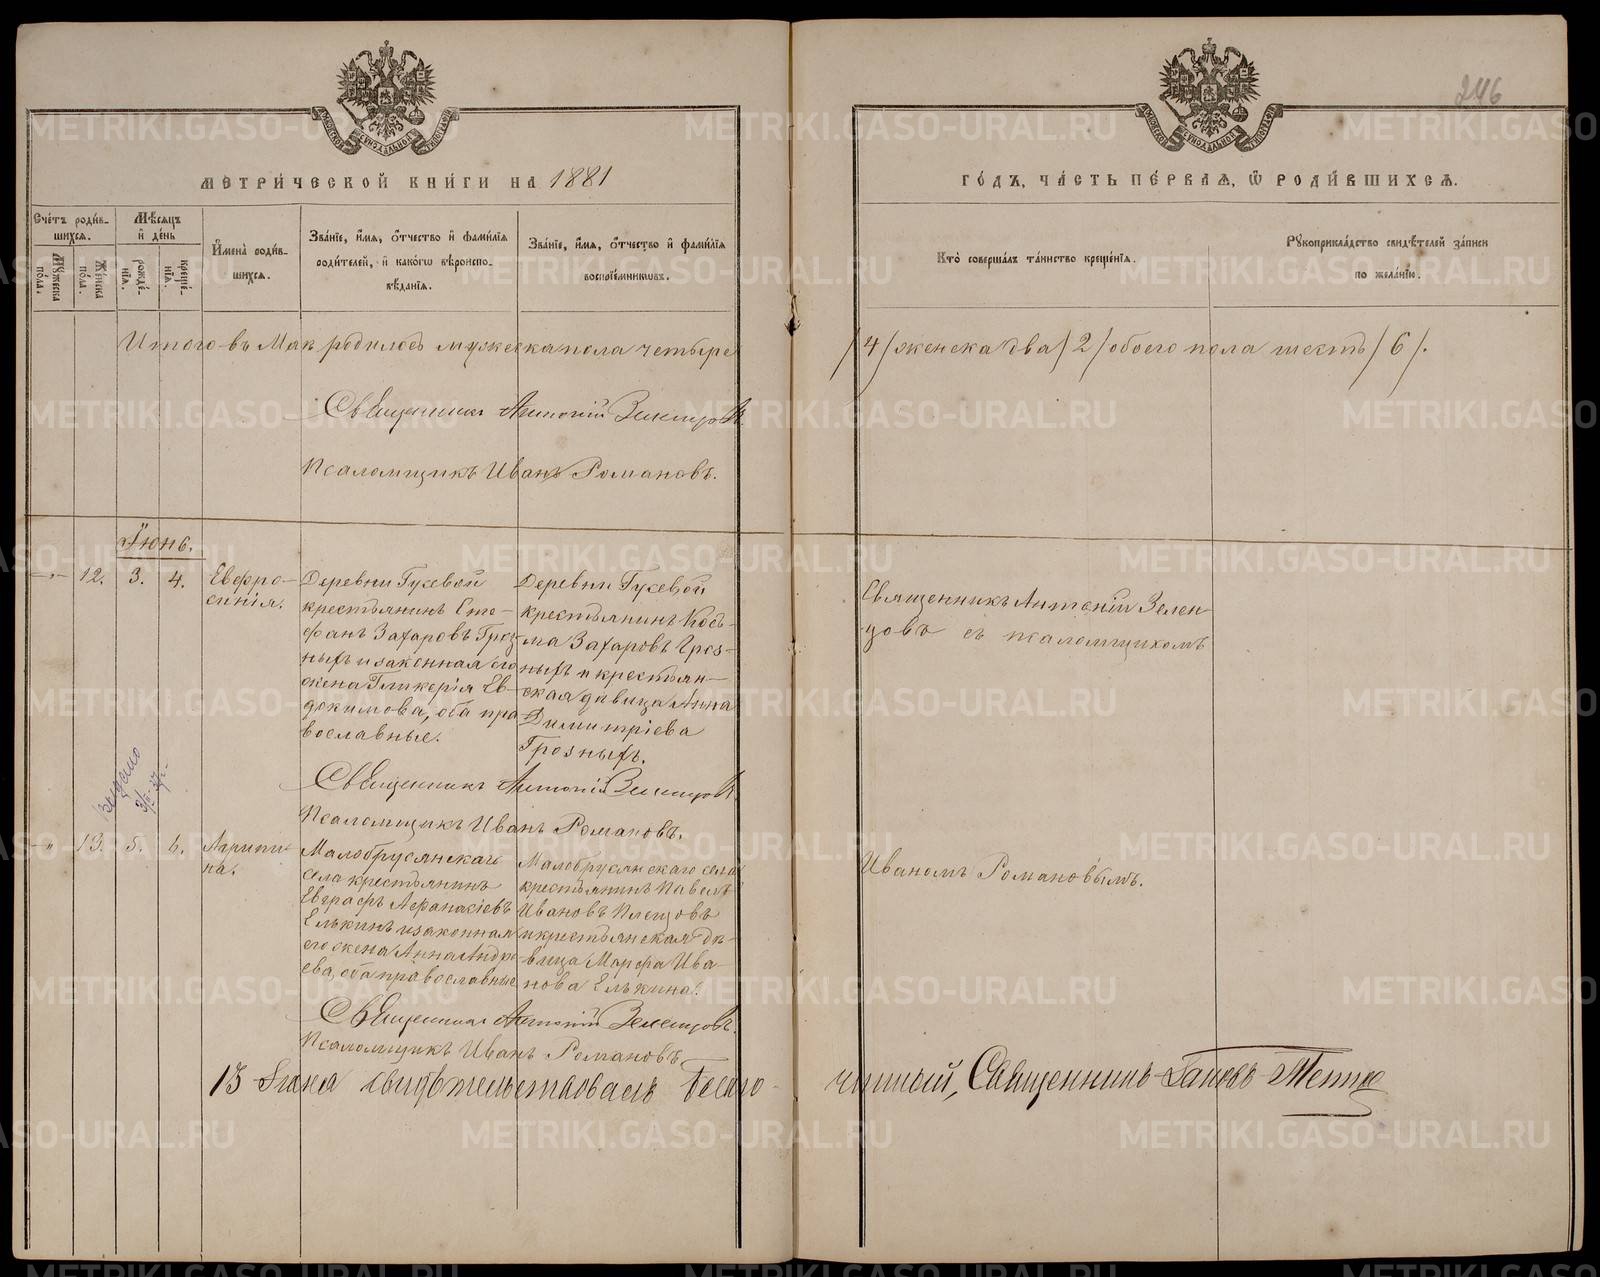 246
МЕТРИ́ЧЕСКОЙ КНИ́ГИ НА 1881
ГО́ДЪ, ЧА́СТЬ ПЕ́РВАЯ, Ѿ РОДИ́ВШИХСЯ.
Сче́тъ роди́в-
шихся.
Му́жеска по́ла.
Же́нска по́ла.
Мѣ́сяцъ
и де́нь
рожде́нія.
креще́нія.
Имена̀ роди́в-
шихся.
Зва́ніе, и́мя, о́тчество и фами́лія
роди́телей, и како́гѡ вѣроиспо-
вѣ́данія.
Зва́ніе, и́мя, о́тчество и фами́лія
воспріе́мникѡвъ.
Кто̀ соверша́лъ та́инство креще́нія.
Рукоприкла́дство свидѣ́телей за́писи
по жела́нію.
Итого въ Маѣ родилось мужеска пола четыре
/4/ женска два /2/ обоего пола шесть /6/.
Священникъ Антоній Зеленцовъ.
Псаломщикъ Иванъ Романовъ.
Іюнь.
12. 3. 4.
Евфро-
синія.
Деревни Гусевой
крестьянинъ Сте-
фанъ Захаровъ Гроз-
ныхъ и законная его
жена Гликерія Ев-
докимова, оба пра
вославные.
Деревни Гусевой
крестьянинъ Кось-
ма Захаровъ Гроз-
ныхъ и крестьян-
ская дѣвица Анна
Димитріева
Грозныхъ.
Священникъ Антоній Зелен-
цовъ съ псаломщикомъ
Священникъ Антоній Зеленцовъ.
Псаломщикъ Иванъ Романовъ.
выдано
13. 5. 6.
Агрипи-
на.
Малобрусянскаго
села крестьянинъ
Евграфъ Афанасіевъ
Елькинъ и законная
его жена Анна Андре
ева, оба православные
Малобрусянскаго села
крестьянинъ Павелъ
Ивановъ Плещовъ
и крестьянская дѣ-
вица Марфа Ива-
нова Елькина.
Иваномъ Романовымъ.
Священникъ Антоній Зеленцовъ.
Псаломщикъ Иванъ Романовъ
13 Іюня свидѣтельствовалъ Благо-
чинный, Священникъ
METRIKI.GASO-URAL.RU